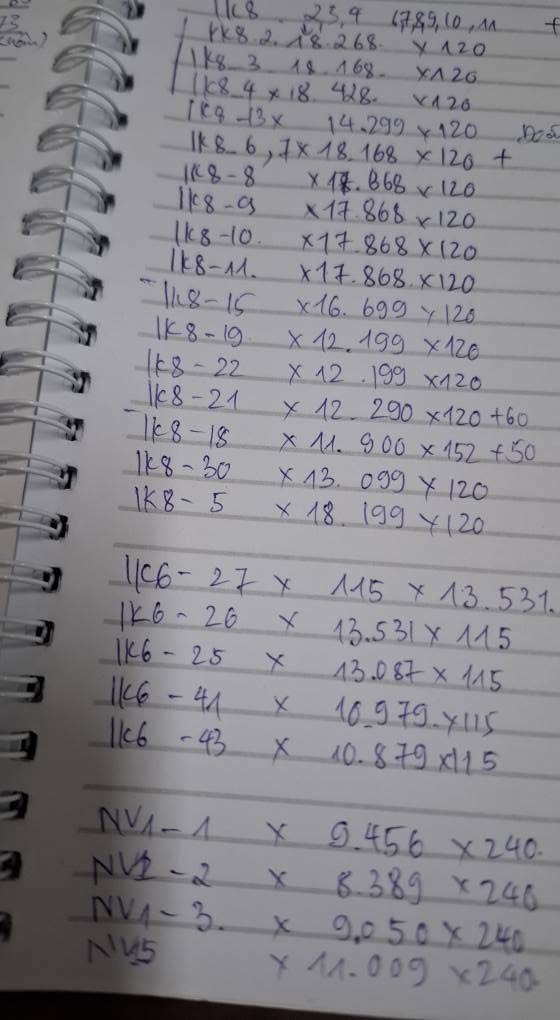 73
1K8. 2,3,4 6,7,8,9,10,11 +
1K8.2. 18.268. x120
1K8_3 18.168. x120
1K8_4 x 18.428. x120
1K8-13x 14.299 x120
1K8-6,7 x 18.168 x120 +
1K8-8 x17.868 x120
1K8-9 x17.868 x120
1K8-10. x17.868 x120
1K8-11. x17.868. x120
- 1K8-15 x16.699 x120
1K8-19 x12.199 x120
1K8-22 x12.199 x120
1K8-21 x12.290 x120+60
- 1K8-18 x 11.900 x152+50
1K8-30 x13.099 x120
1K8-5 x18.199 x120
1K6-27 x 115 x 13.531.
1K6-26 x 13.531 x 115
1K6-25 x 13.087 x 115
1K6-41 x 10.979.x115
1K6-43 x 10.879x115
NV1-1 x 9.456 x240.
NV1-2 x 8.389 x240
NV1-3. x 9.050 x 240
NV15 x 11.009 x240.